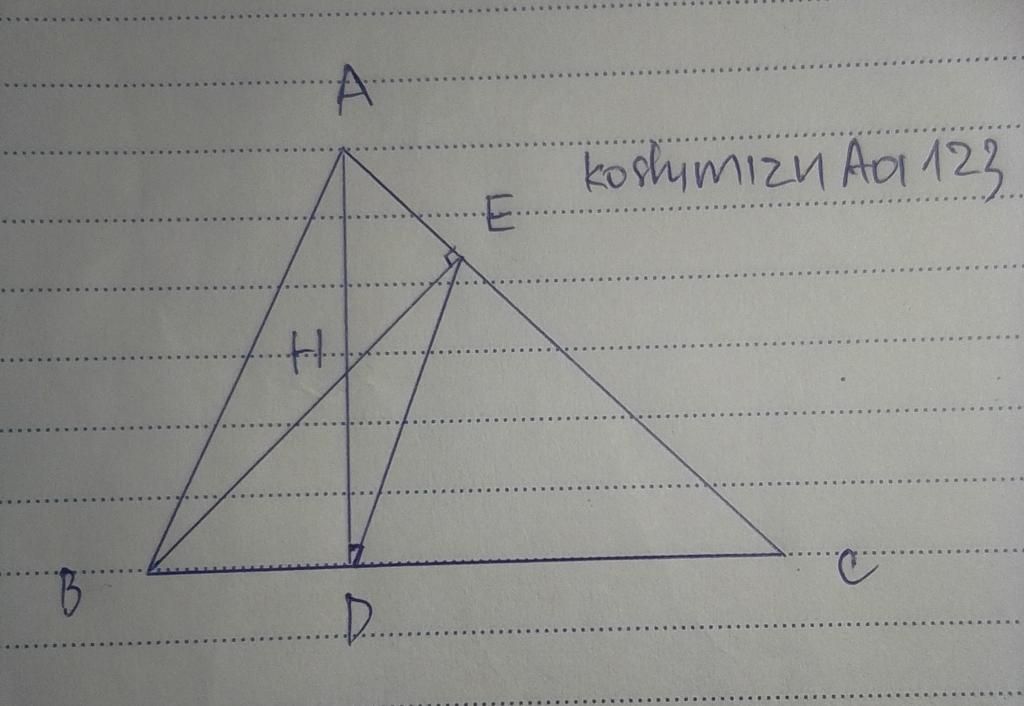 A
koshimizu Aoi 123
E
H
B
D
C